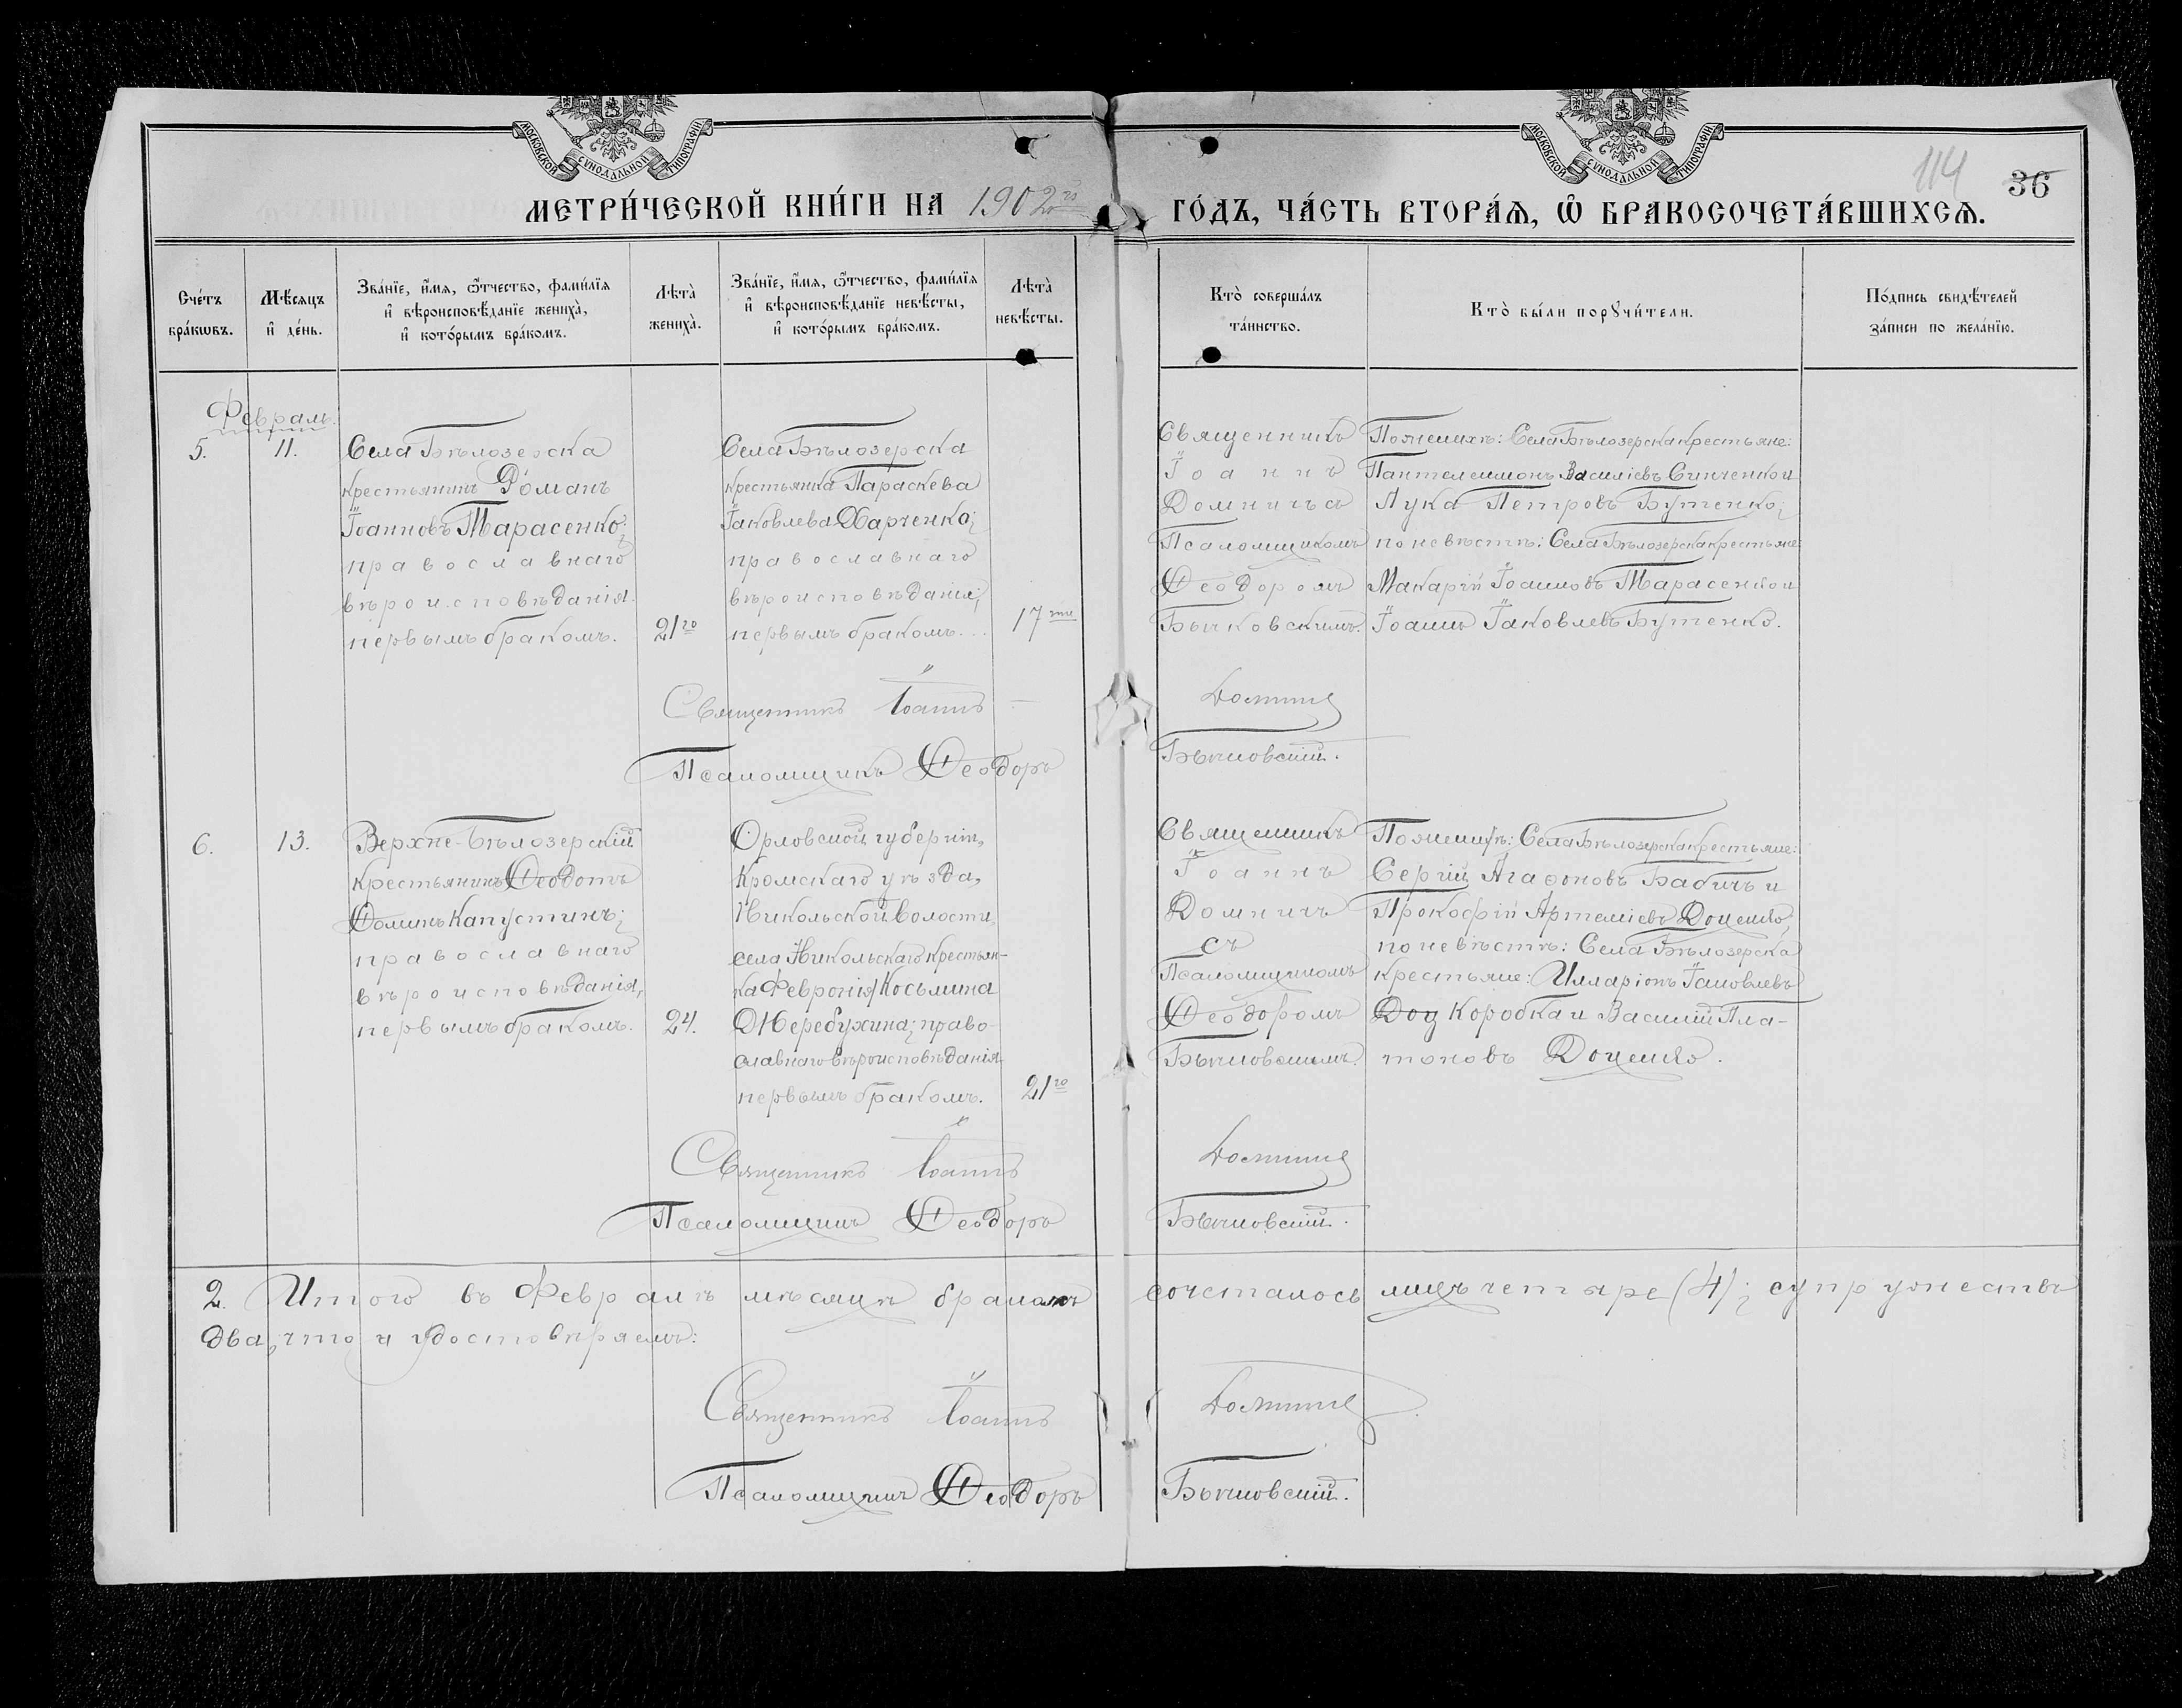 МОСКОВСКОЙ СѴНОДАЛЬНОЙ ТИПОГРАФІИ
МОСКОВСКОЙ СѴНОДАЛЬНОЙ ТИПОГРАФІИ
114 36
МЕТРИ́ЧЕСКОЙ КНИ́ГИ НА 1902го ГО́ДЪ, ЧА́СТЬ ВТОРА́Ѧ, Ѡ҆ БРАКОСОЧЕТА́ВШИХСѦ.
Сче́тъ
бра́кѡвъ.
Мѣ́сяцъ
и҆ де́нь.
Зва́нїе, и҆́мя, ѻ҆́тчество, фами́лїя
и҆ вѣроисповѣ́данїе жениха̀,
и҆ кото́рымъ бра́комъ.
Лѣта̀
жениха̀.
Зва́нїе, и҆́мя, ѻ҆́тчество, фами́лїя
и҆ вѣроисповѣ́данїе невѣ́сты,
и҆ кото́рымъ бра́комъ.
Лѣта̀
невѣ́сты.
Кто̀ соверша́лъ
та́инство.
Кто̀ бы́ли порꙋчи́тели.
По́дпись свидѣ́телей
за́писи по жела́нїю.
Февраль.
5.
11.
Села Бѣлозерска
крестьянинъ Романъ
Іоанновъ Тарасенко;
православнаго
вѣроисповѣданія.
первымъ бракомъ.
21го
Села Бѣлозерска
крестьянка Параскева
Іаковлева Харченко;
православнаго
вѣроисповѣданія;
первымъ бракомъ...
17ти
Священникъ
Іоаннъ
Домничъ с
Псаломщикомъ
Ѳеодоромъ
Бычковскимъ.
По женихѣ: Села Бѣлозерска крестьяне:
Пантелеимонъ Василіевъ Синченко и
Лука Петровъ Бутенко;
по невѣстѣ: Села Бѣлозерска крестьяне:
Макарій Іоанновъ Тарасенко и
Іоаннъ Іаковлевъ Бутенко.
Священникъ Іоаннъ Домничъ
Псаломщикъ Ѳеодоръ Бычковскій.
6.
13.
Верхне-Бѣлозерскій
крестьянинъ Ѳеодотъ
Ѳоминъ Капустинъ;
православнаго
вѣроисповѣданія,
первымъ бракомъ.
24.
Орловской губерніи,
Кромскаго уѣзда,
Никольской волости,
села Никольскаго крестьян-
ка Февронія Косьмина
Жеребухина; право-
славнаго вѣроисповѣданія
первымъ бракомъ.
21го
Священникъ
Іоаннъ
Домничъ
съ
Псаломщикомъ
Ѳеодоромъ
Бычковскимъ.
По женихѣ: Села Бѣлозерска крестьяне:
Сергій Агаѳоновъ Бабичъ и
Прокофій Артеміевъ Доценко,
по невѣстѣ: Села Бѣлозерска
крестьяне: Илларіонъ Іаковлевъ
Доц Коробка и Василій Пла-
тоновъ Доценко.
Священникъ Іоаннъ Домничъ
Псаломщикъ Ѳеодоръ Бычковскій.
2. Итого въ Февралѣ мѣсяцѣ бракомъ сочеталось лицъ четыре (4); супружествъ
два, что и удостовѣряемъ:
Священникъ Іоаннъ Домничъ
Псаломщикъ Ѳеодоръ Бычковскій.